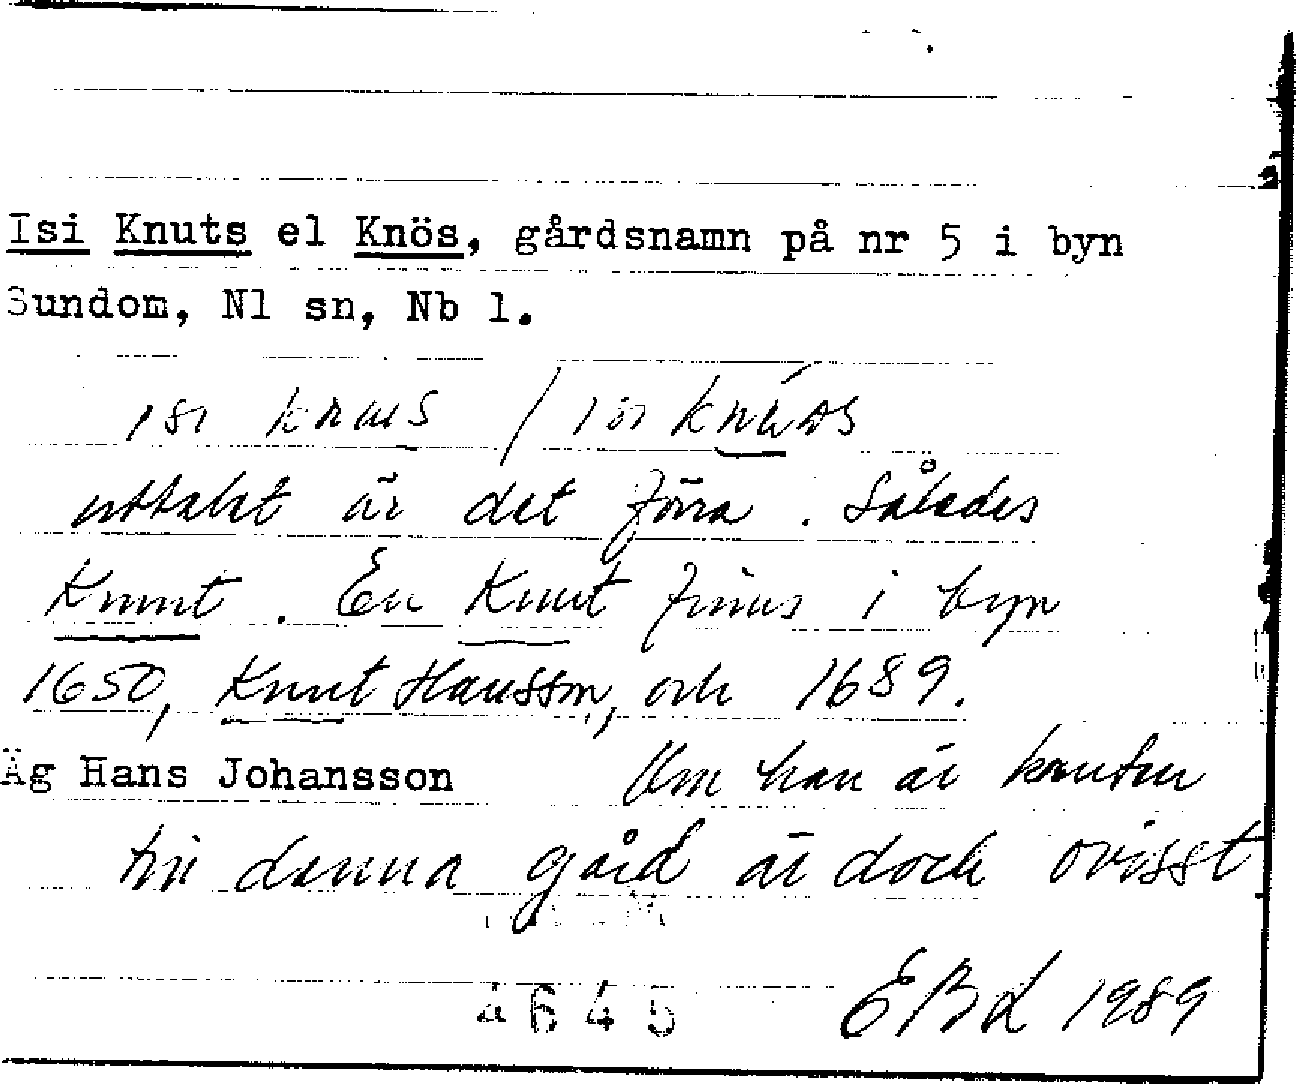 Isi Knuts el Knös, gårdsnamn på nr 5 i byn
Sundom, Nl sn, Nb l.
isi /
uttalat är det förra. Således
Knut. En Knut finns i byn
1650, Knut Hansson, och 1689.
Äg Hans Johansson Om han är knuten
till denna gård är dock ovisst
4645 EBL 1989